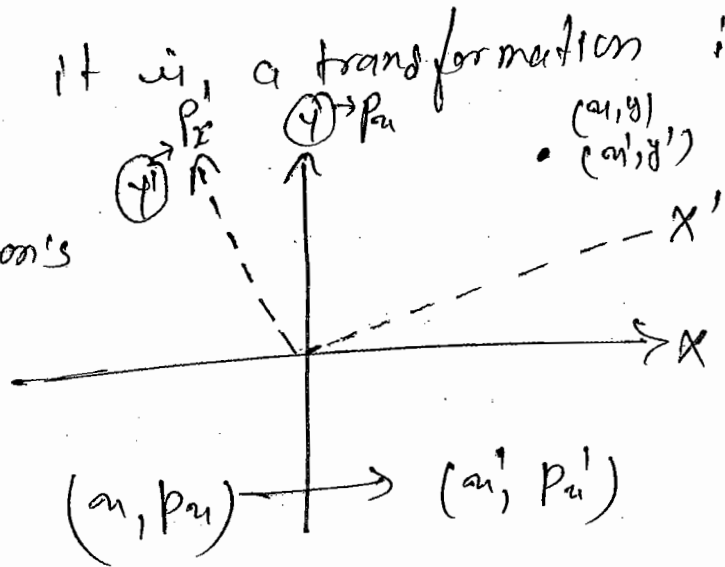 it is, a transformation :
Y' → Px'
Y → Px
(x, y)
(x', y')
on's
X'
X
(x, Px) → (x', Px')